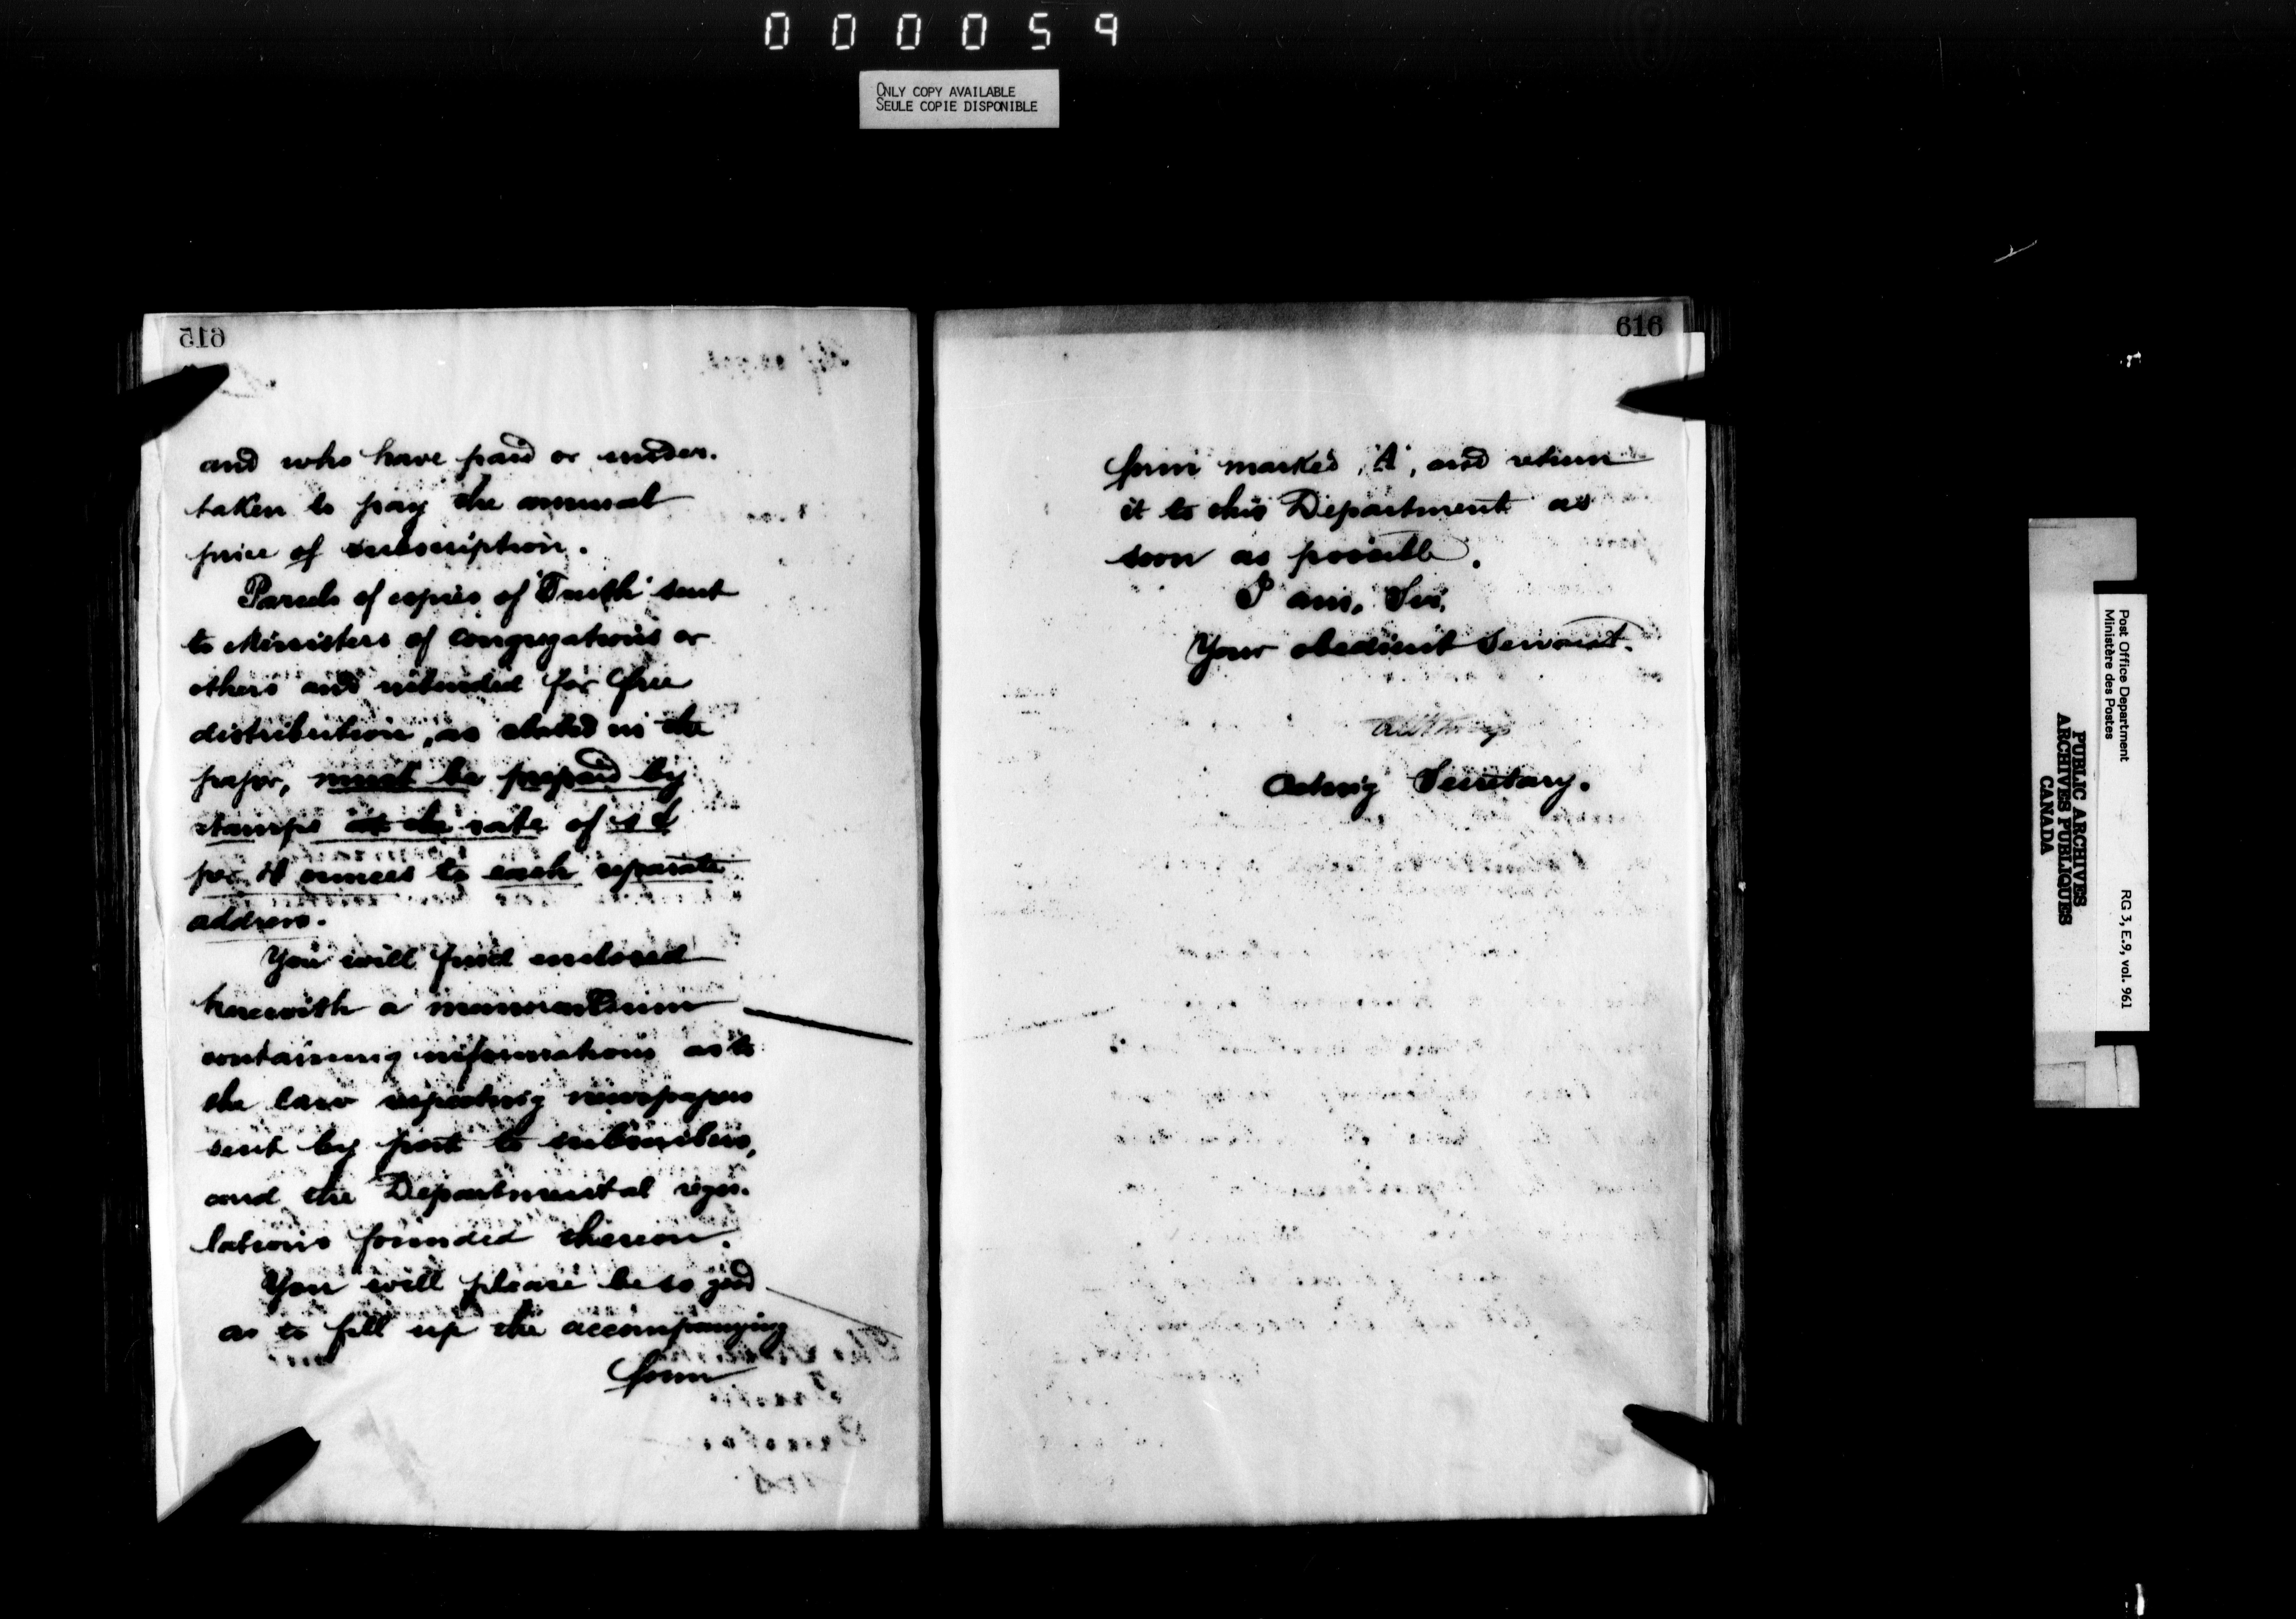 000059
ONLY COPY AVAILABLE
SEULE COPIE DISPONIBLE
615
and who have paid or under-
taken to pay the annual
price of subscription.
Parcels of copies of "Truth" sent
to Ministers of Congregations or
others and intended for free
distribution, as stated in the
paper, must be prepaid by
stamps at the rate of 1 ¢
per 4 ounces to each separate
address.
You will find enclosed
herewith a memorandum
containing information as to
the law respecting newspapers
sent by post to subscribers,
and the Departmental regu-
lations founded thereon.
You will please be so good
as to fill up the accompanying
form
616
form marked 'A', and return
it to this Department as
soon as possible.
I am, Sir,
Your obedient Servant.
Acting Secretary.
Post Office Department
Ministère des Postes
RG 3, E.9, vol. 961
PUBLIC ARCHIVES
ARCHIVES PUBLIQUES
CANADA